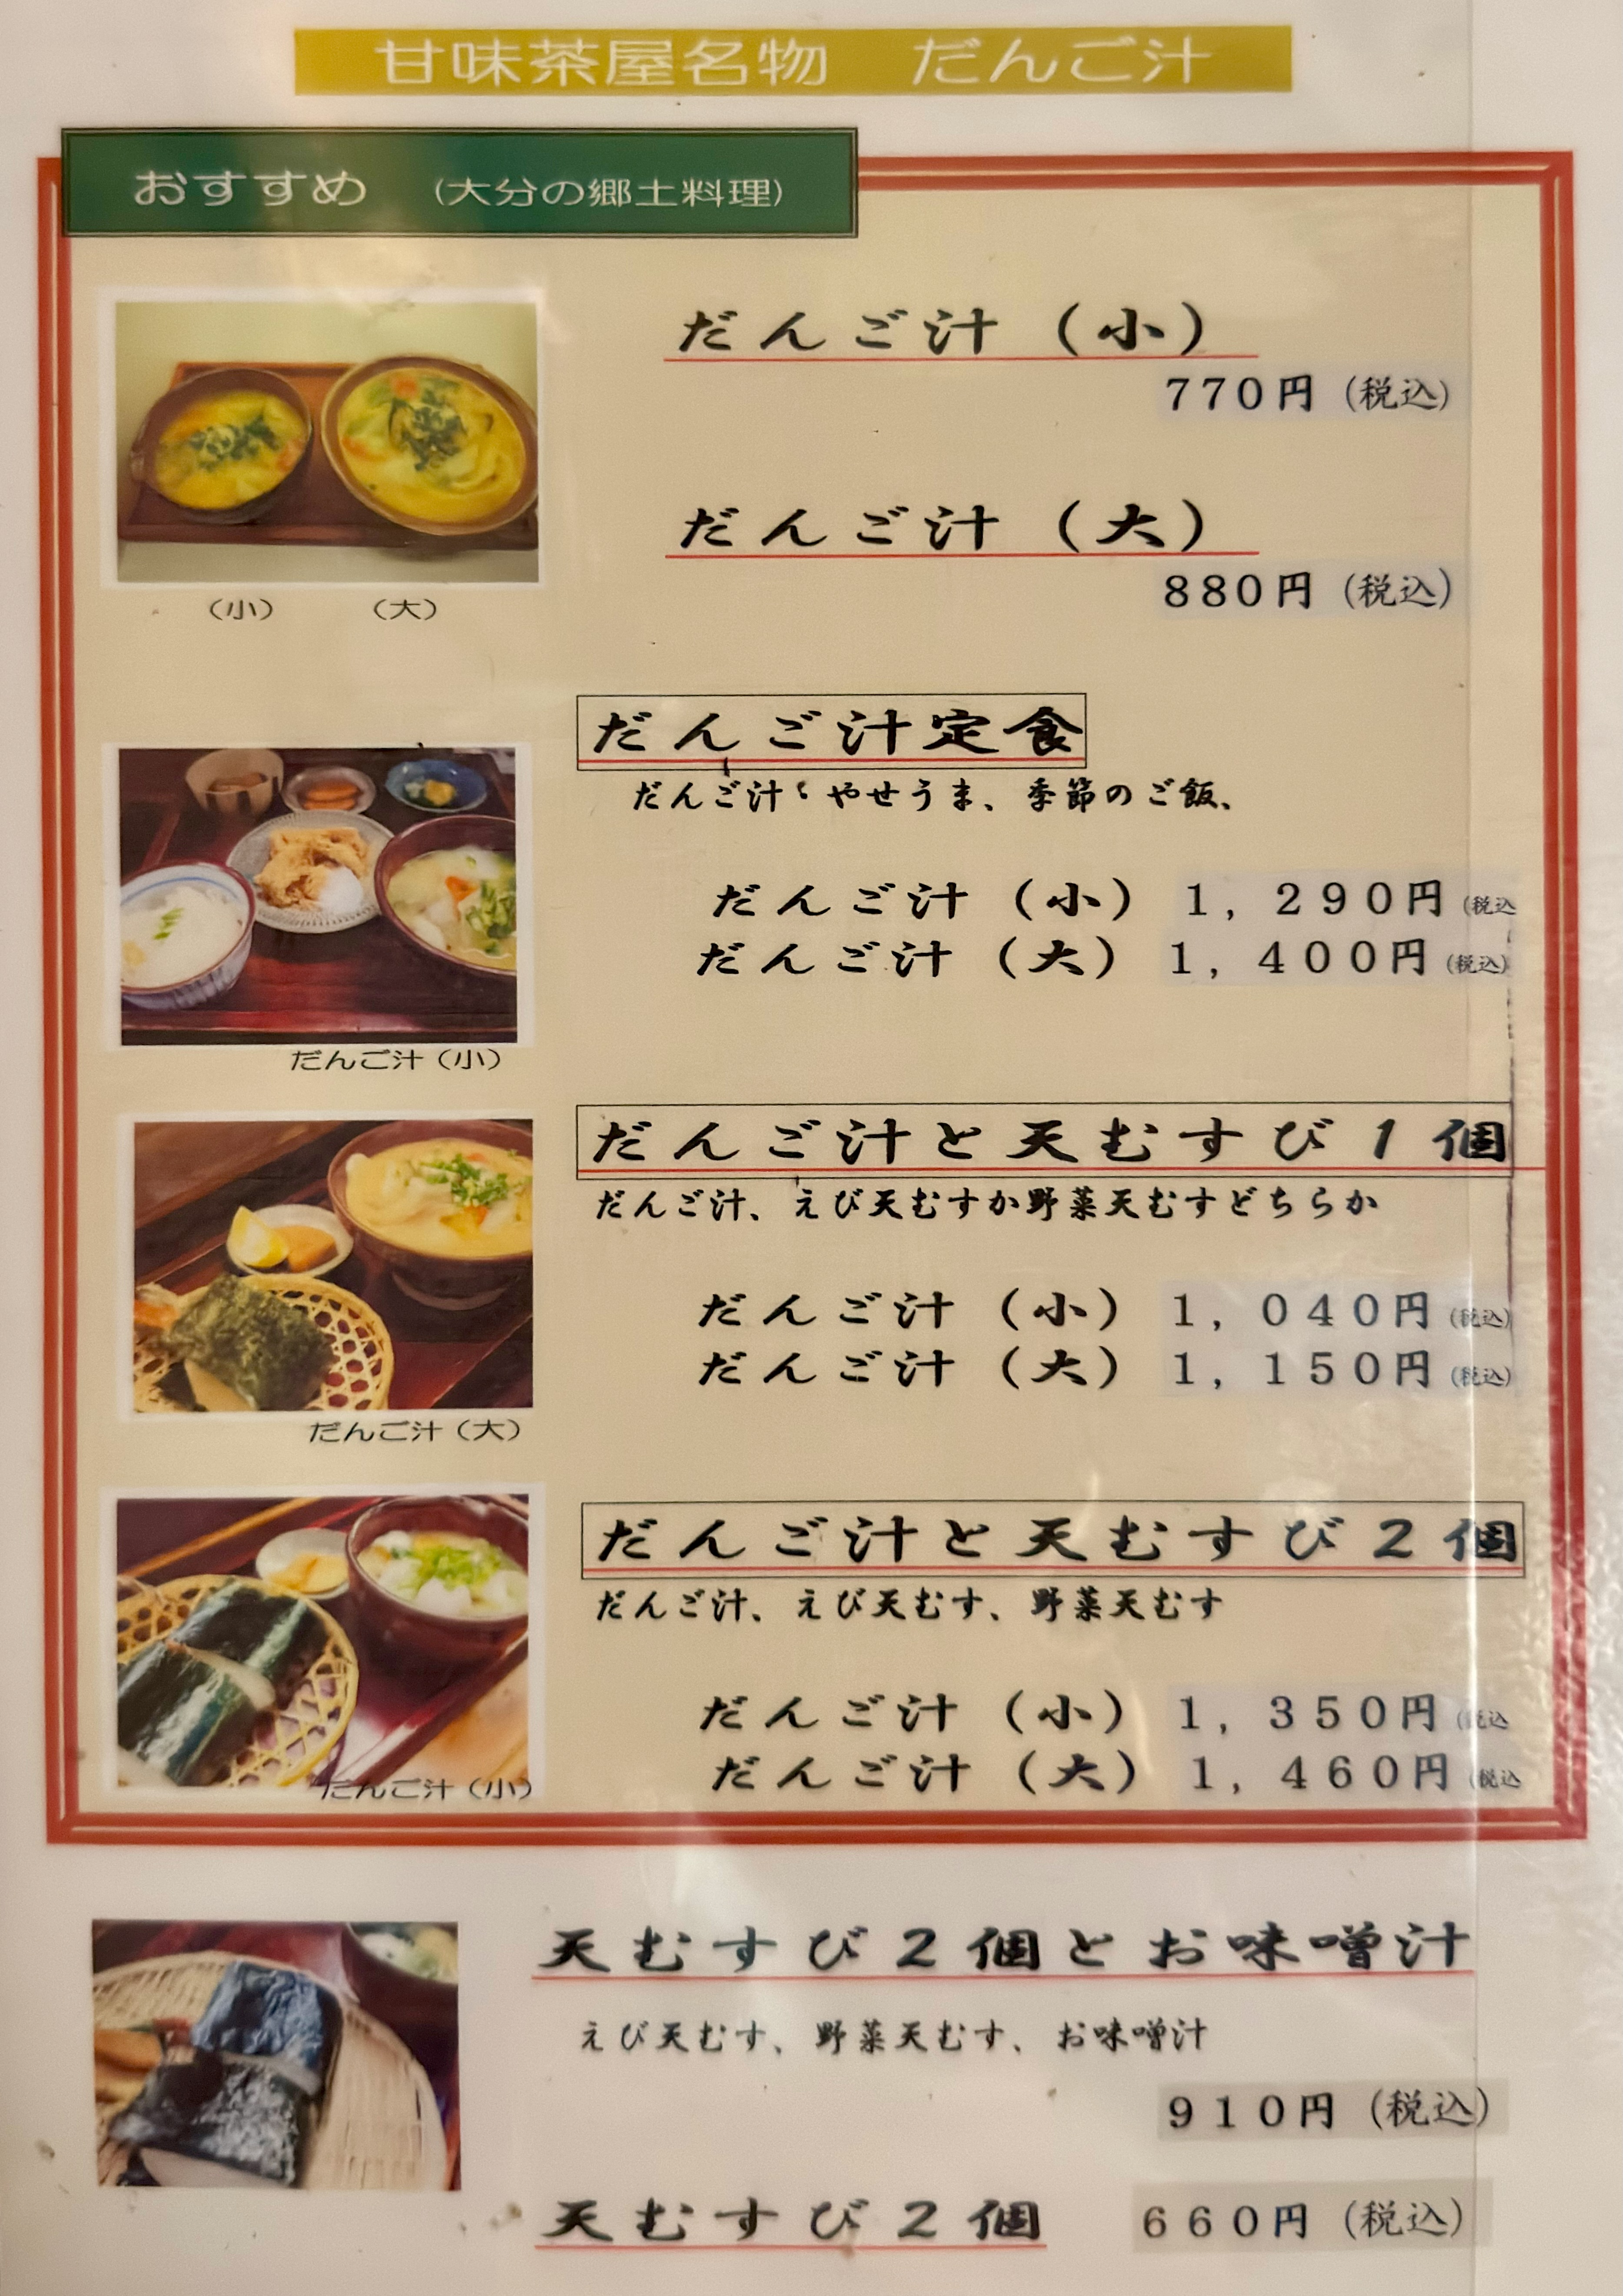 甘味茶屋名物　だんご汁
おすすめ　（大分の郷土料理）
だんご汁（小）
770円（税込）
だんご汁（大）
880円（税込）
（小）　（大）
だんご汁定食
だんご汁、やせうま、季節のご飯、
だんご汁（小）1，290円（税込
だんご汁（大）1，400円（税込）
だんご汁（小）
だんご汁と天むすび1個
だんご汁、えび天むすか野菜天むすどちらか
だんご汁（小）1，040円（税込）
だんご汁（大）1，150円（税込）
だんご汁（大）
だんご汁と天むすび2個
だんご汁、えび天むす、野菜天むす
だんご汁（小）1，350円（税込
だんご汁（大）1，460円（税込
だんご汁（小）
天むすび2個とお味噌汁
えび天むす、野菜天むす、お味噌汁
910円（税込）
天むすび2個　660円（税込）